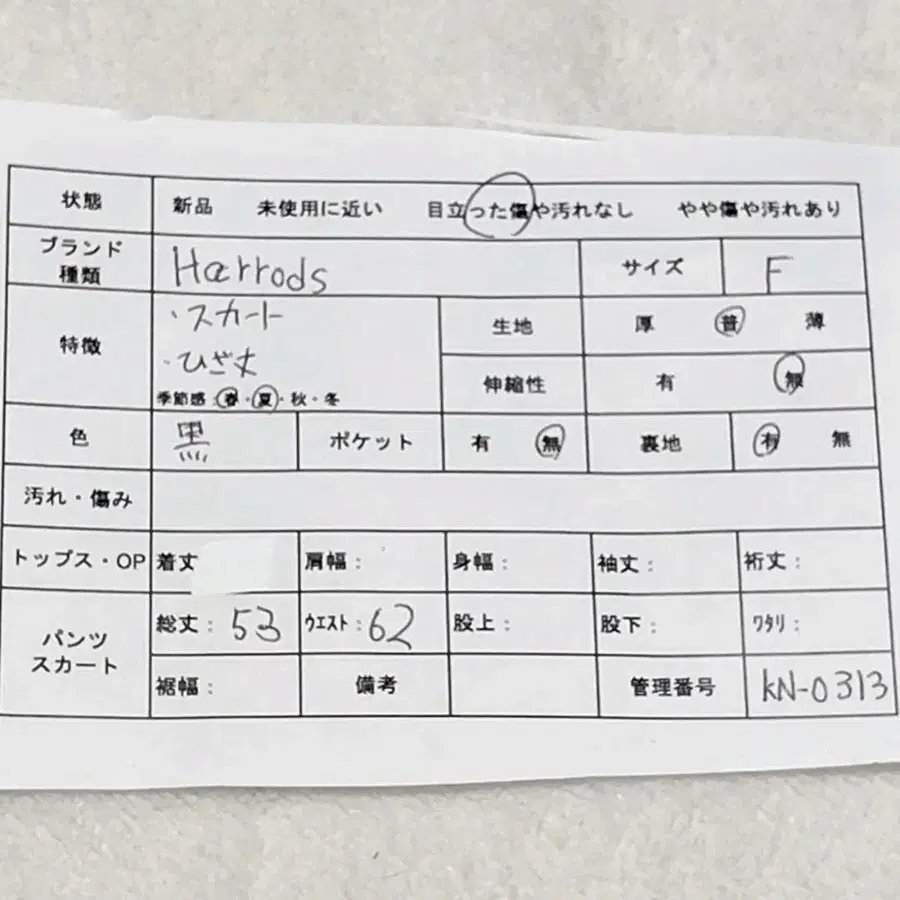 状態 新品 未使用に近い 目立った傷や汚れなし やや傷や汚れあり
ブランド
種類 Harrods サイズ F
特徴 ・スカート
・ひざ丈
季節感:春・夏・秋・冬
生地 厚 普 薄
伸縮性 有 無
色 黒 ポケット 有 無 裏地 有 無
汚れ・傷み
トップス・OP 着丈 肩幅: 身幅: 袖丈: 裄丈:
パンツ
スカート
総丈: 53 ウエスト: 62 股上: 股下: ワタリ:
裾幅: 備考 管理番号 KN-0313